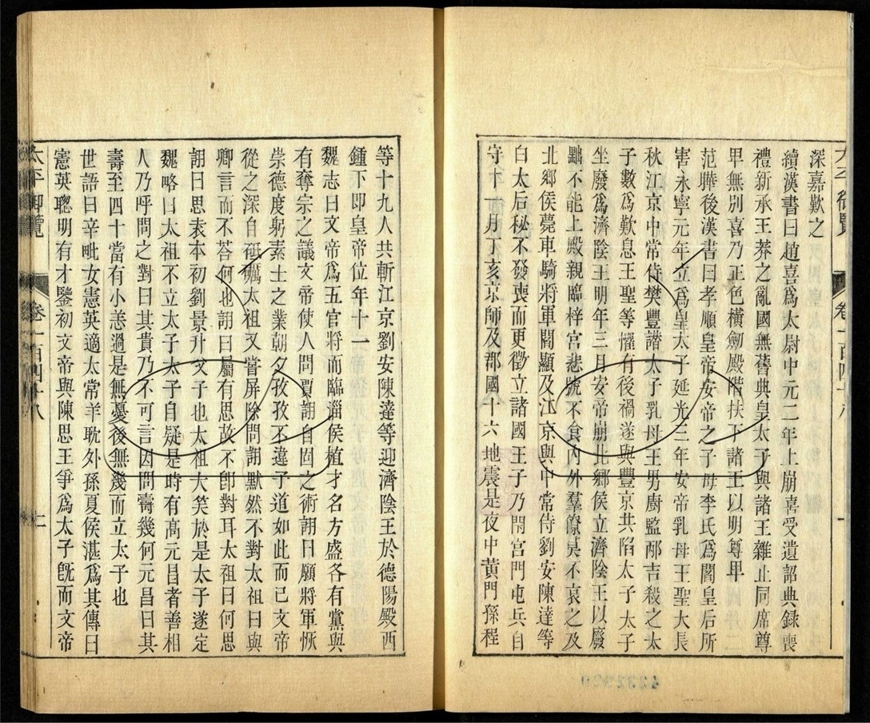 深嘉歎之
續漢書曰趙喜爲太尉中元二年上崩喜受遺詔典録喪
禮新承王莽之亂國無舊典皇太子與諸王雜止同席尊
卑無别喜乃正色橫劒殿階扶下諸王以明尊卑
范曄後漢書曰孝順皇帝安帝之子母李氏爲閻皇后所
害永寧元年立爲皇太子延光三年安帝乳母王聖大長
秋江京中常侍樊豐譖太子乳母王男厨監邴吉殺之太
子數爲歎息王聖等懼有後禍遂與豐京共陷太子太子
坐廢爲濟陰王明年三月安帝崩北鄉侯立濟陰王以廢
黜不能上殿親臨梓宫悲號不食内外羣僚莫不哀之及
北鄉侯薨車騎將軍閻顯及江京與中常侍劉安陳達等
白太后秘不發喪而更徵立諸國王子乃閉宫門屯兵自
守十一月丁亥京師及郡國十六地震是夜中黄門孫程
等十九人共斬江京劉安陳達等迎濟陰王於德陽殿西
鍾下即皇帝位年十一
魏志曰文帝爲五官將而臨淄侯植才名方盛各有黨與
有奪宗之議文帝使人問賈詡自固之術詡曰願將軍恢
崇德度躬素士之業朝夕孜孜不違子道如此而已文帝
從之深自砥礪太祖又嘗屏除問詡默然不對太祖曰與
卿言而不荅何也詡曰屬有思故不卽對耳太祖曰何思
詡曰思袁本初劉景升父子也太祖大笑於是太子遂定
魏略曰太祖不立太子太子自疑是時有高元吕者善相
人乃呼問之對曰其貴乃不可言因問壽幾何元吕曰其
壽至四十當有小恙過是無憂後無幾而立太子也
世語曰辛毗女憲英適太常羊耽外孫夏侯湛爲其傳曰
憲英聰明有才鑒初文帝與陳思王爭爲太子旣而文帝
太平御覽
卷一百四十八
十一